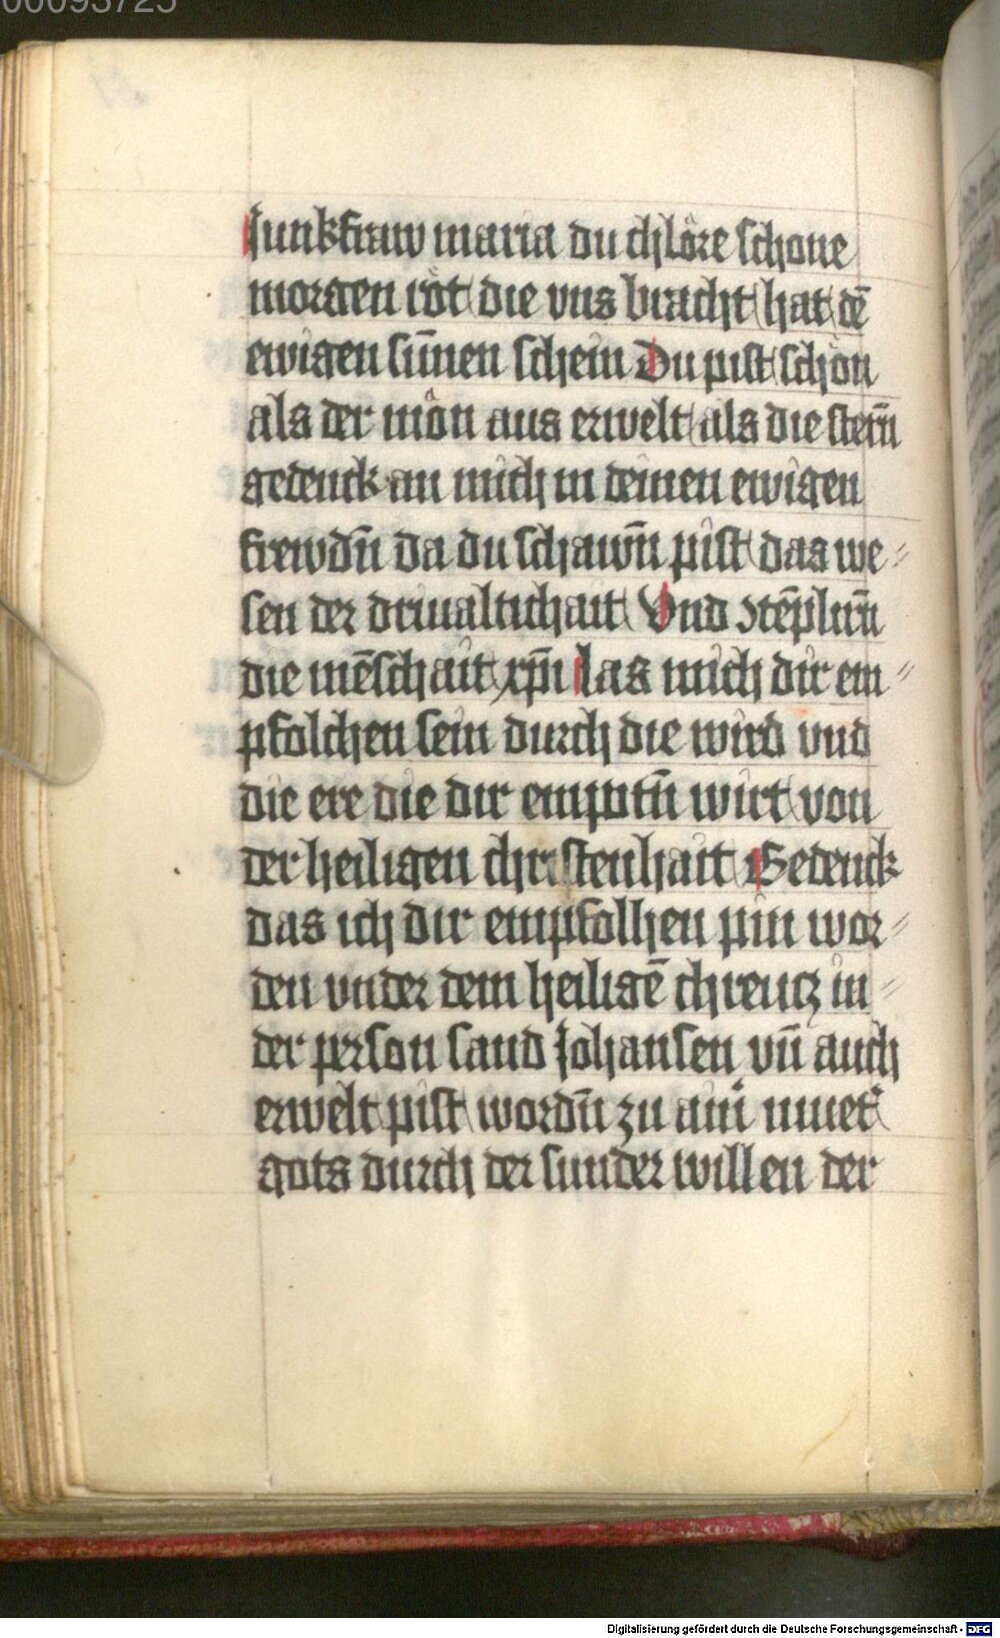 00093725
Junkfraw maria du chlöre schone
morgen röt die vns bracht hat dē
ewigen sūnen schein Du pist schön
als der mön aus erwelt als die stern̄
gedenck an mich in deinen ewigen
frewdn̄ da du schawn̄ pist das we⸗
sen der driualtichait Vnd
die mēschait xp̄i las mich dir em⸗
pfolchen sein durch die wird vnd
die ere die dir empotn̄ wirt von
der heiligen christenhait Gedenck
das ich dir empfolhen pin wor⸗
den vnder dem heiligē chreucz in⸗
der person sand Johansen vn̄ auch
erwelt pist wordn̄ zu
gots durch der sunder willen der
Digitalisierung gefördert durch die Deutsche Forschungsgemeinschaft - DFG